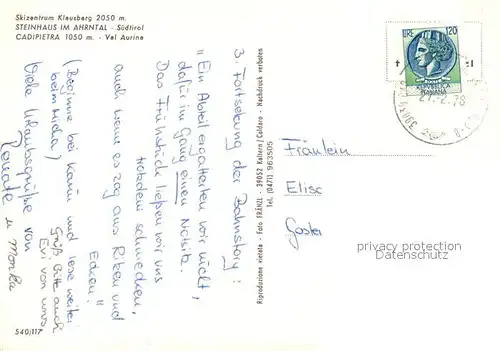 Skizentrum Klausberg 2050 m.
STEINHAUS IM AHRNTAL - Südtirol
CADIPIETRA 1050 m. - Val Aurina
3. Fortsetzung der Bahnstory:
"Ein Abteil ergatterten wir nicht,
dafür im Gang einen Notsitz.
Das Frühstück ließen wir uns
trotzdem schmecken,
auch wenn es zog aus Ritzen und
Ecken."
(Beginne bei Karin und lese weiter
bei Micha) Grüß bitte auch
Evi von uns
Viele Urlaubsgrüße von
Renate u Monika
540/117
Riproduzione vietata - Foto FRÄNZL - 39052 Kaltern/Caldaro - Nachdruck verboten
Tel. (0471) 963505
LIRE 120
REPVBBLICA
ITALIANA
Fräulein
Elise
privacy protection
Datenschutz